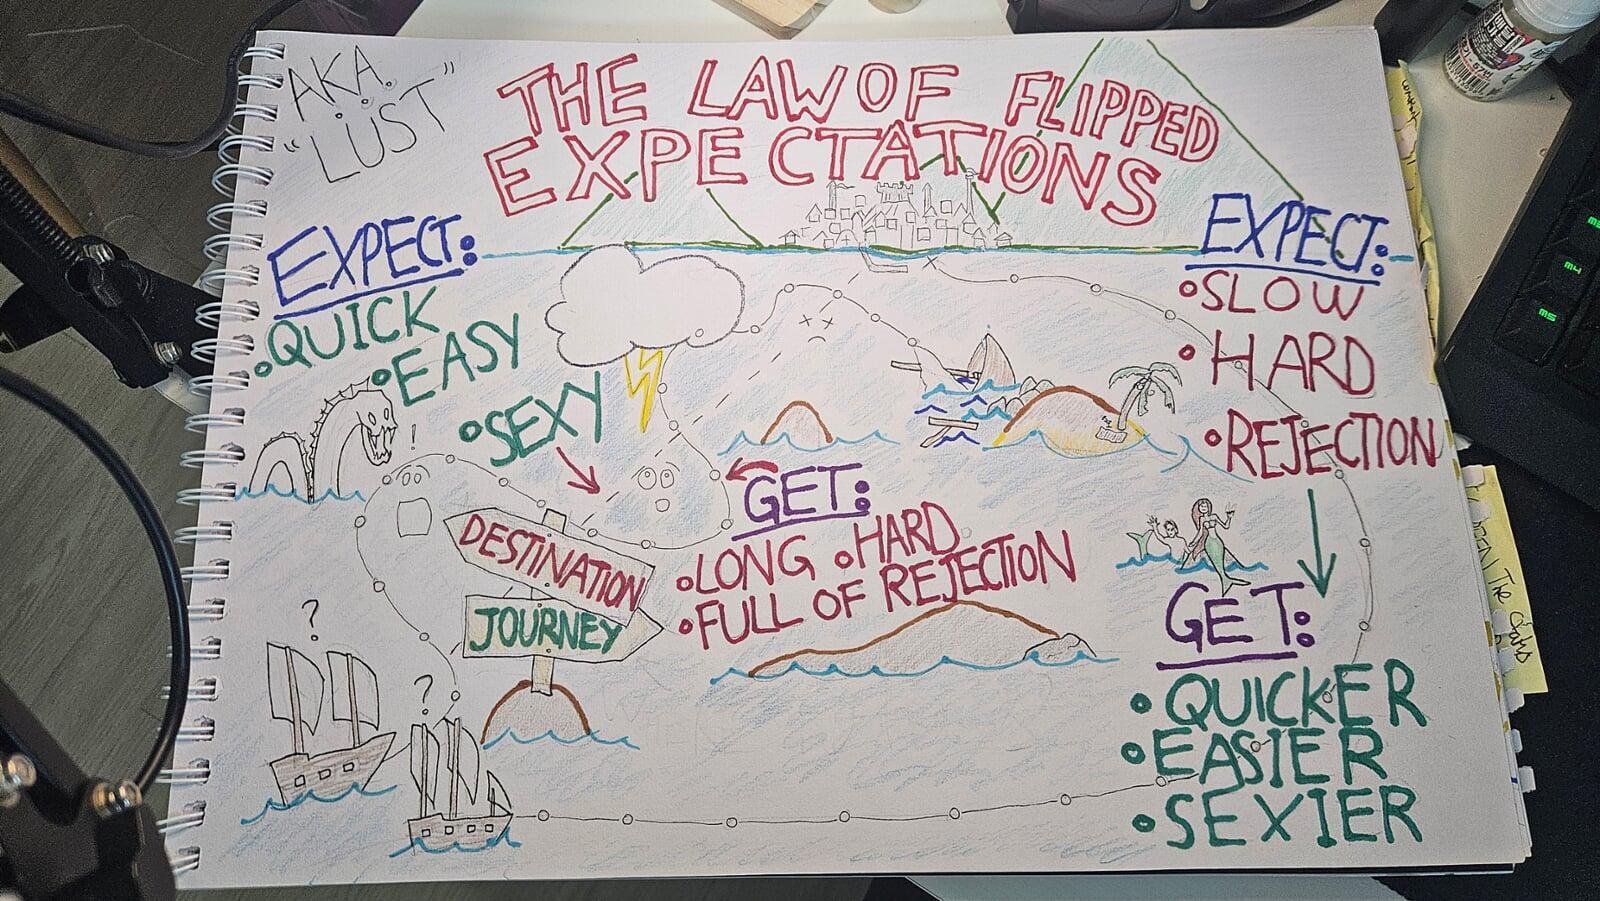 AKA.
"LUST"
THE LAW OF FLIPPED
EXPECTATIONS
EXPECT:
•QUICK
•EASY
•SEXY
!
GET:
•LONG •HARD
•FULL OF REJECTION
DESTINATION
JOURNEY
?
?
EXPECT:
•SLOW
•HARD
•REJECTION
GET:
•QUICKER
•EASIER
•SEXIER
M4
M5